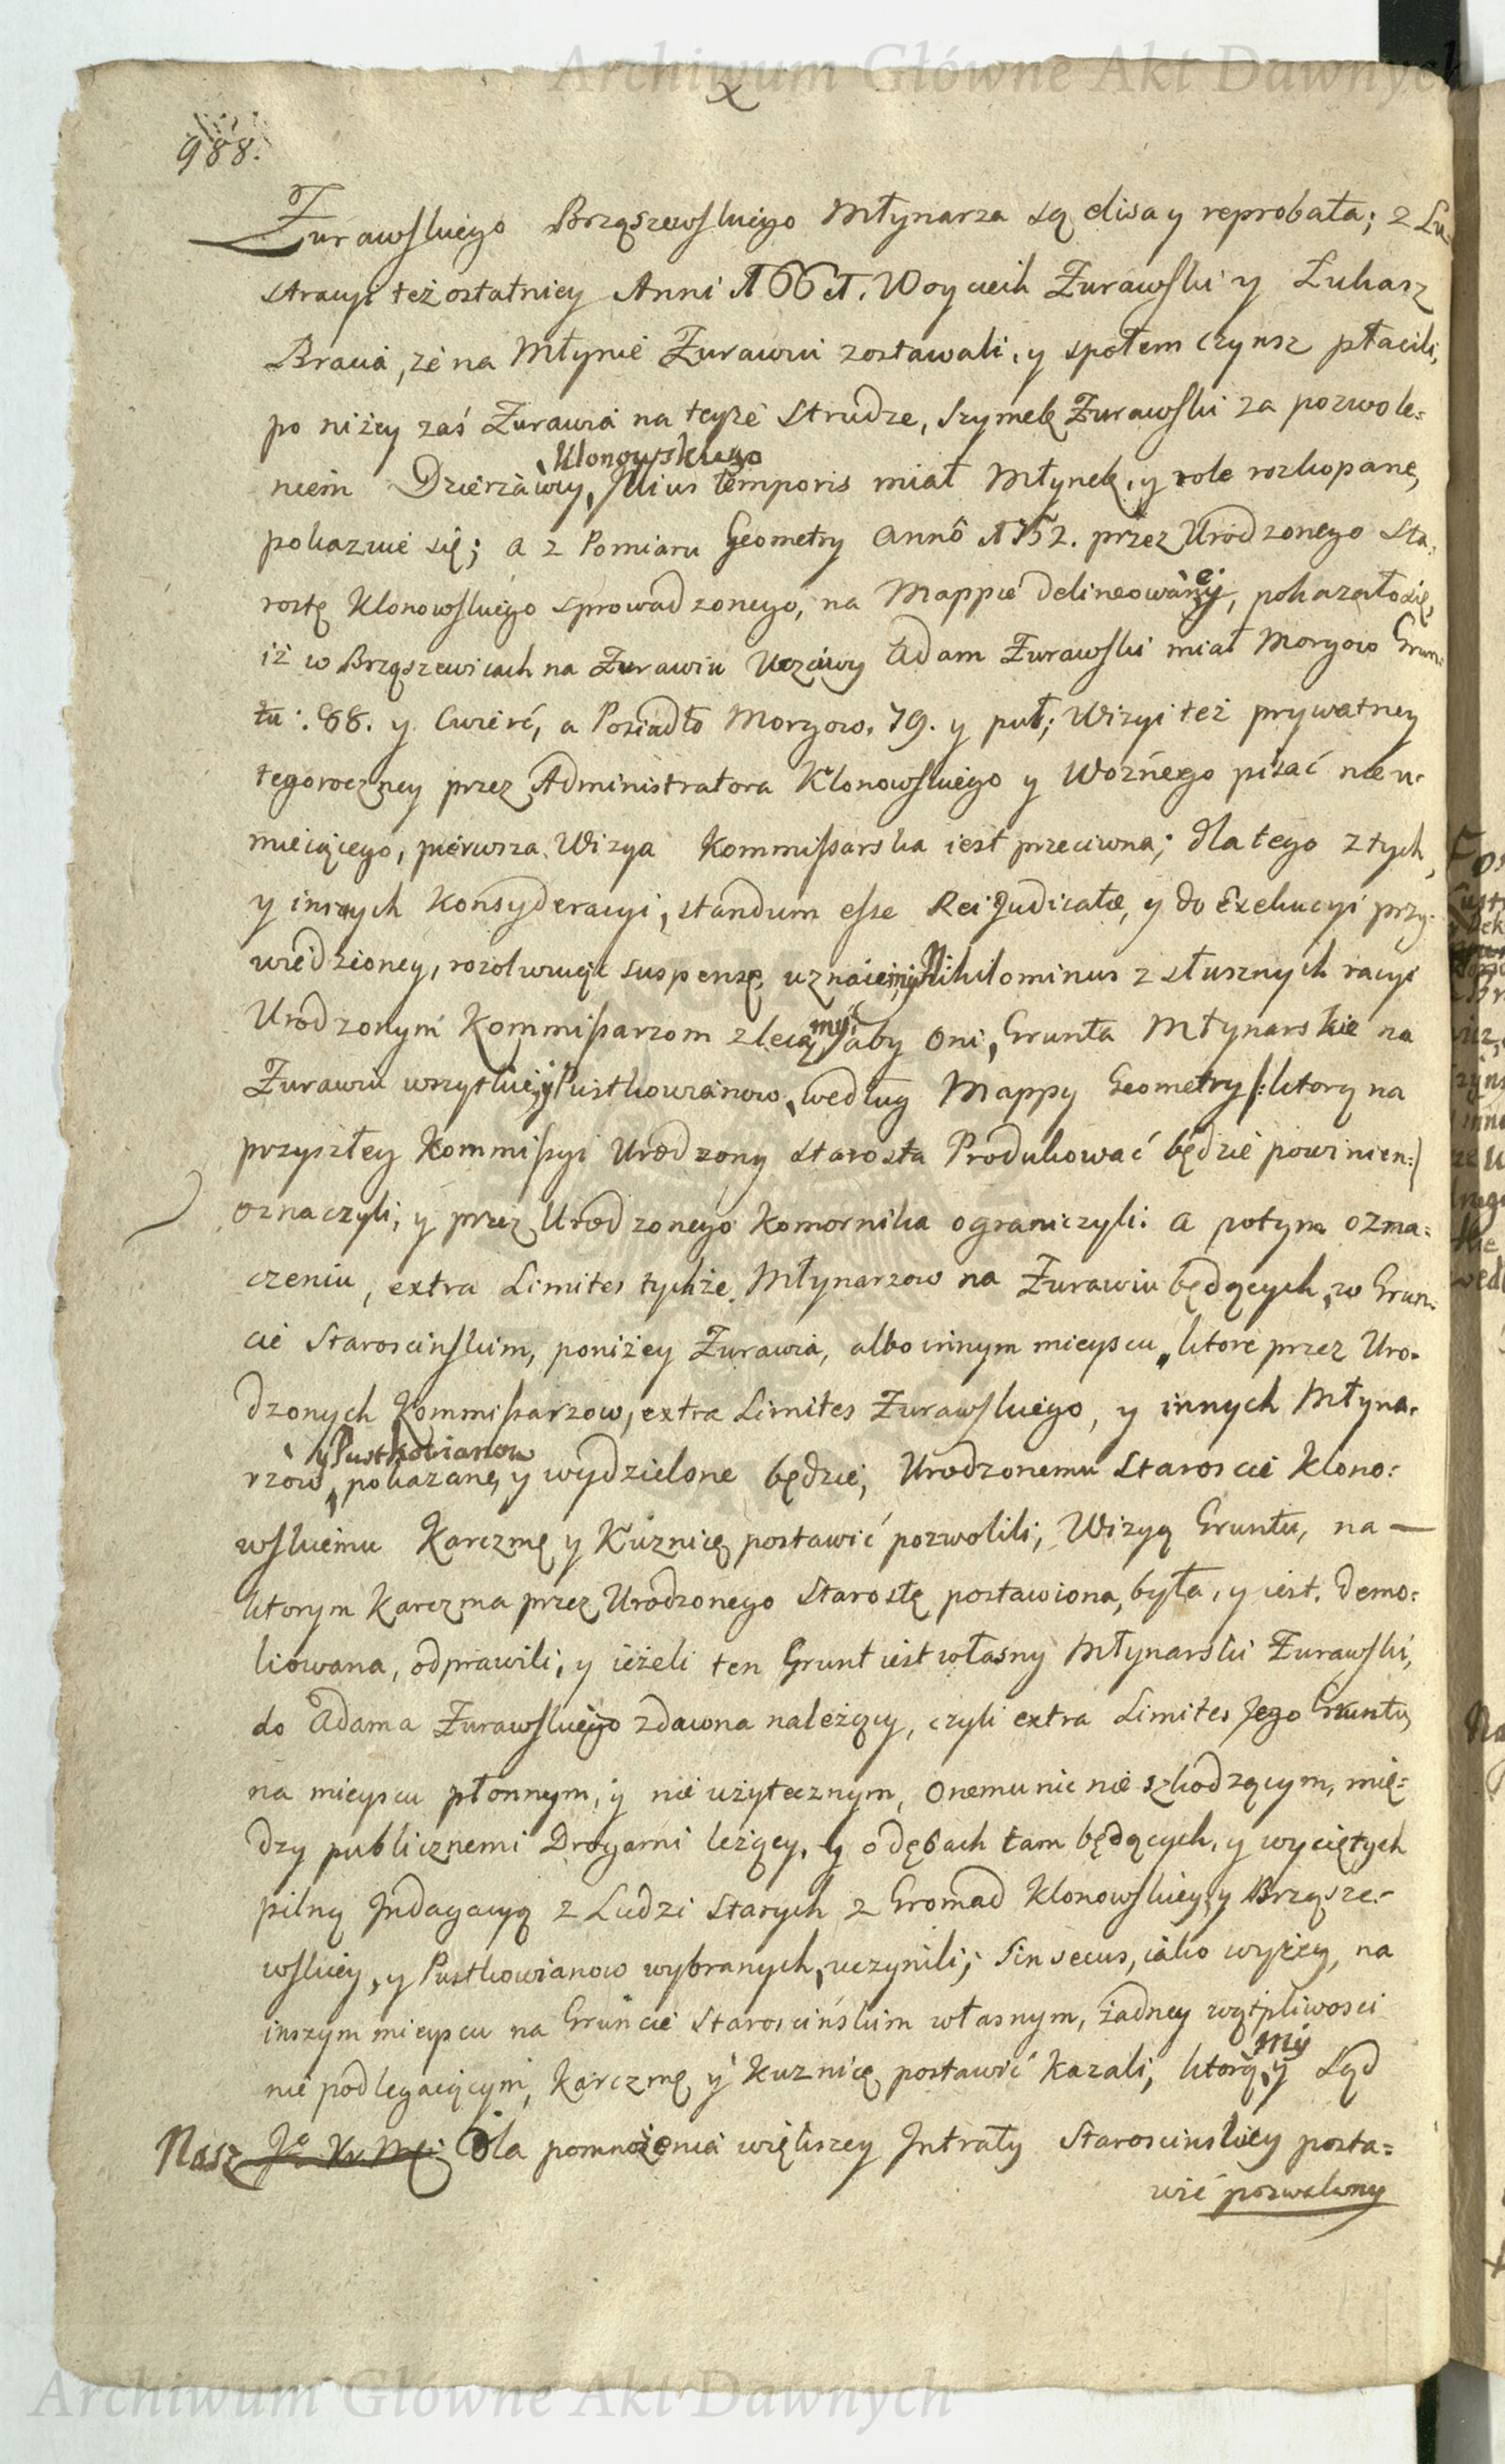 Archiwum Główne Akt Dawnych
X
988.
Żurawskiego Brząszewskiego Młynarza są elisa y reprobata; z Lu-
stracyi też ostatniey Anni 1661. Woyciech Żurawski y Łukasz
Bracia, że na Młynie Żurawiu zostawali, y społem czynsz płacili,
po niżey zaś Żurawia na teyże Strudze, Szymek Żurawski za pozwole:
Klonowskiego
niem Dzierżawcy, illius temporis miał Młynek, y role rozkopane,
pokazuie się; a z Pomiaru Geometry Annô 1752. przez Urodzonego Sta:
rostę Klonowskiego sprowadzonego, na Mappie delineowaney, pokazało się,
iż w Brząszewicach na Żurawiu Uczciwy Adam Żurawski miał Morgow Grun:
tu: 68. y Cwierć, a Posiadło Morgow. 79. y puł; Wizyi też prywatney
tegoroczney przez Administratora Klonowskiego y Woźnego pisać nieu:
mieiącego, pierwsza Wizya Kommissarska iest przeciwna; dla tego z tych,
y inszych Konsyderacyi, standum esse Rei Judicatæ, y do Exekucyi przy:
wiedzioney, rozolwuiąc suspensę, uznaiemy; Nihilominus z słusznych racyi
Urodzonym Kommissarzom zlecamy; aby Oni, Grunta Młynarskie na
Żurawiu wszytkie, y Pustkowianow, według Mappy Geometry /: ktorą na
przyszłey Kommissyi Urodzony Starosta Produkować będzie powinien :/
oznaczyli, y przez Urodzonego Komornika ograniczyli: a potym ozna:
czeniu, extra Limites tychże Młynarzow na Żurawiu będących, w Grun:
cie Staroscinskim, poniżey Żurawia, albo innym mieyscu, ktore przez Uro:
dzonych Kommissarzow, extra Limites Żurawskiego, y innych Młyna:
y Pustkowianow
rzow, pokazane, y wydzielone będzie, Urodzonemu Staroscie Klono:
wskiemu Karczmę y Kuznicę postawić pozwolili, Wizyą Gruntu, na —
ktorym Karczma przez Urodzonego Starostę postawiona, była, y iest. demo:
liowana, odprawili, y ieżeli ten Grunt iest własny Młynarski Żurawski,
do Adama Żurawskiego zdawna należący, czyli extra Limites Jego Gruntu,
na mieyscu płonnym, y nie użytecznym, onemu nic nie szkodzącym, mię:
dzy publicznemi Drogami leżący, y o dębach tam będących, y wyciętych
pilną Indagacyą z Ludzi Starych z Gromad Klonowskiey, y Brząsze:
wskiey, y Pustkowianow wybranych, uczynili; Sin secus, iako wyżey, na
inszym mieyscu na Gruncie Staroscińskim własnym, żadney wątpliwosci
nie podlegaiącym, Karczmę y Kuznicę postawić Kazali, ktorą my Sąd
Nasz J. Kr. Mci dla pomnożenia większey Intraty Staroscinskiey posta:
wić pozwalamy
Archiwum Główne Akt Dawnych